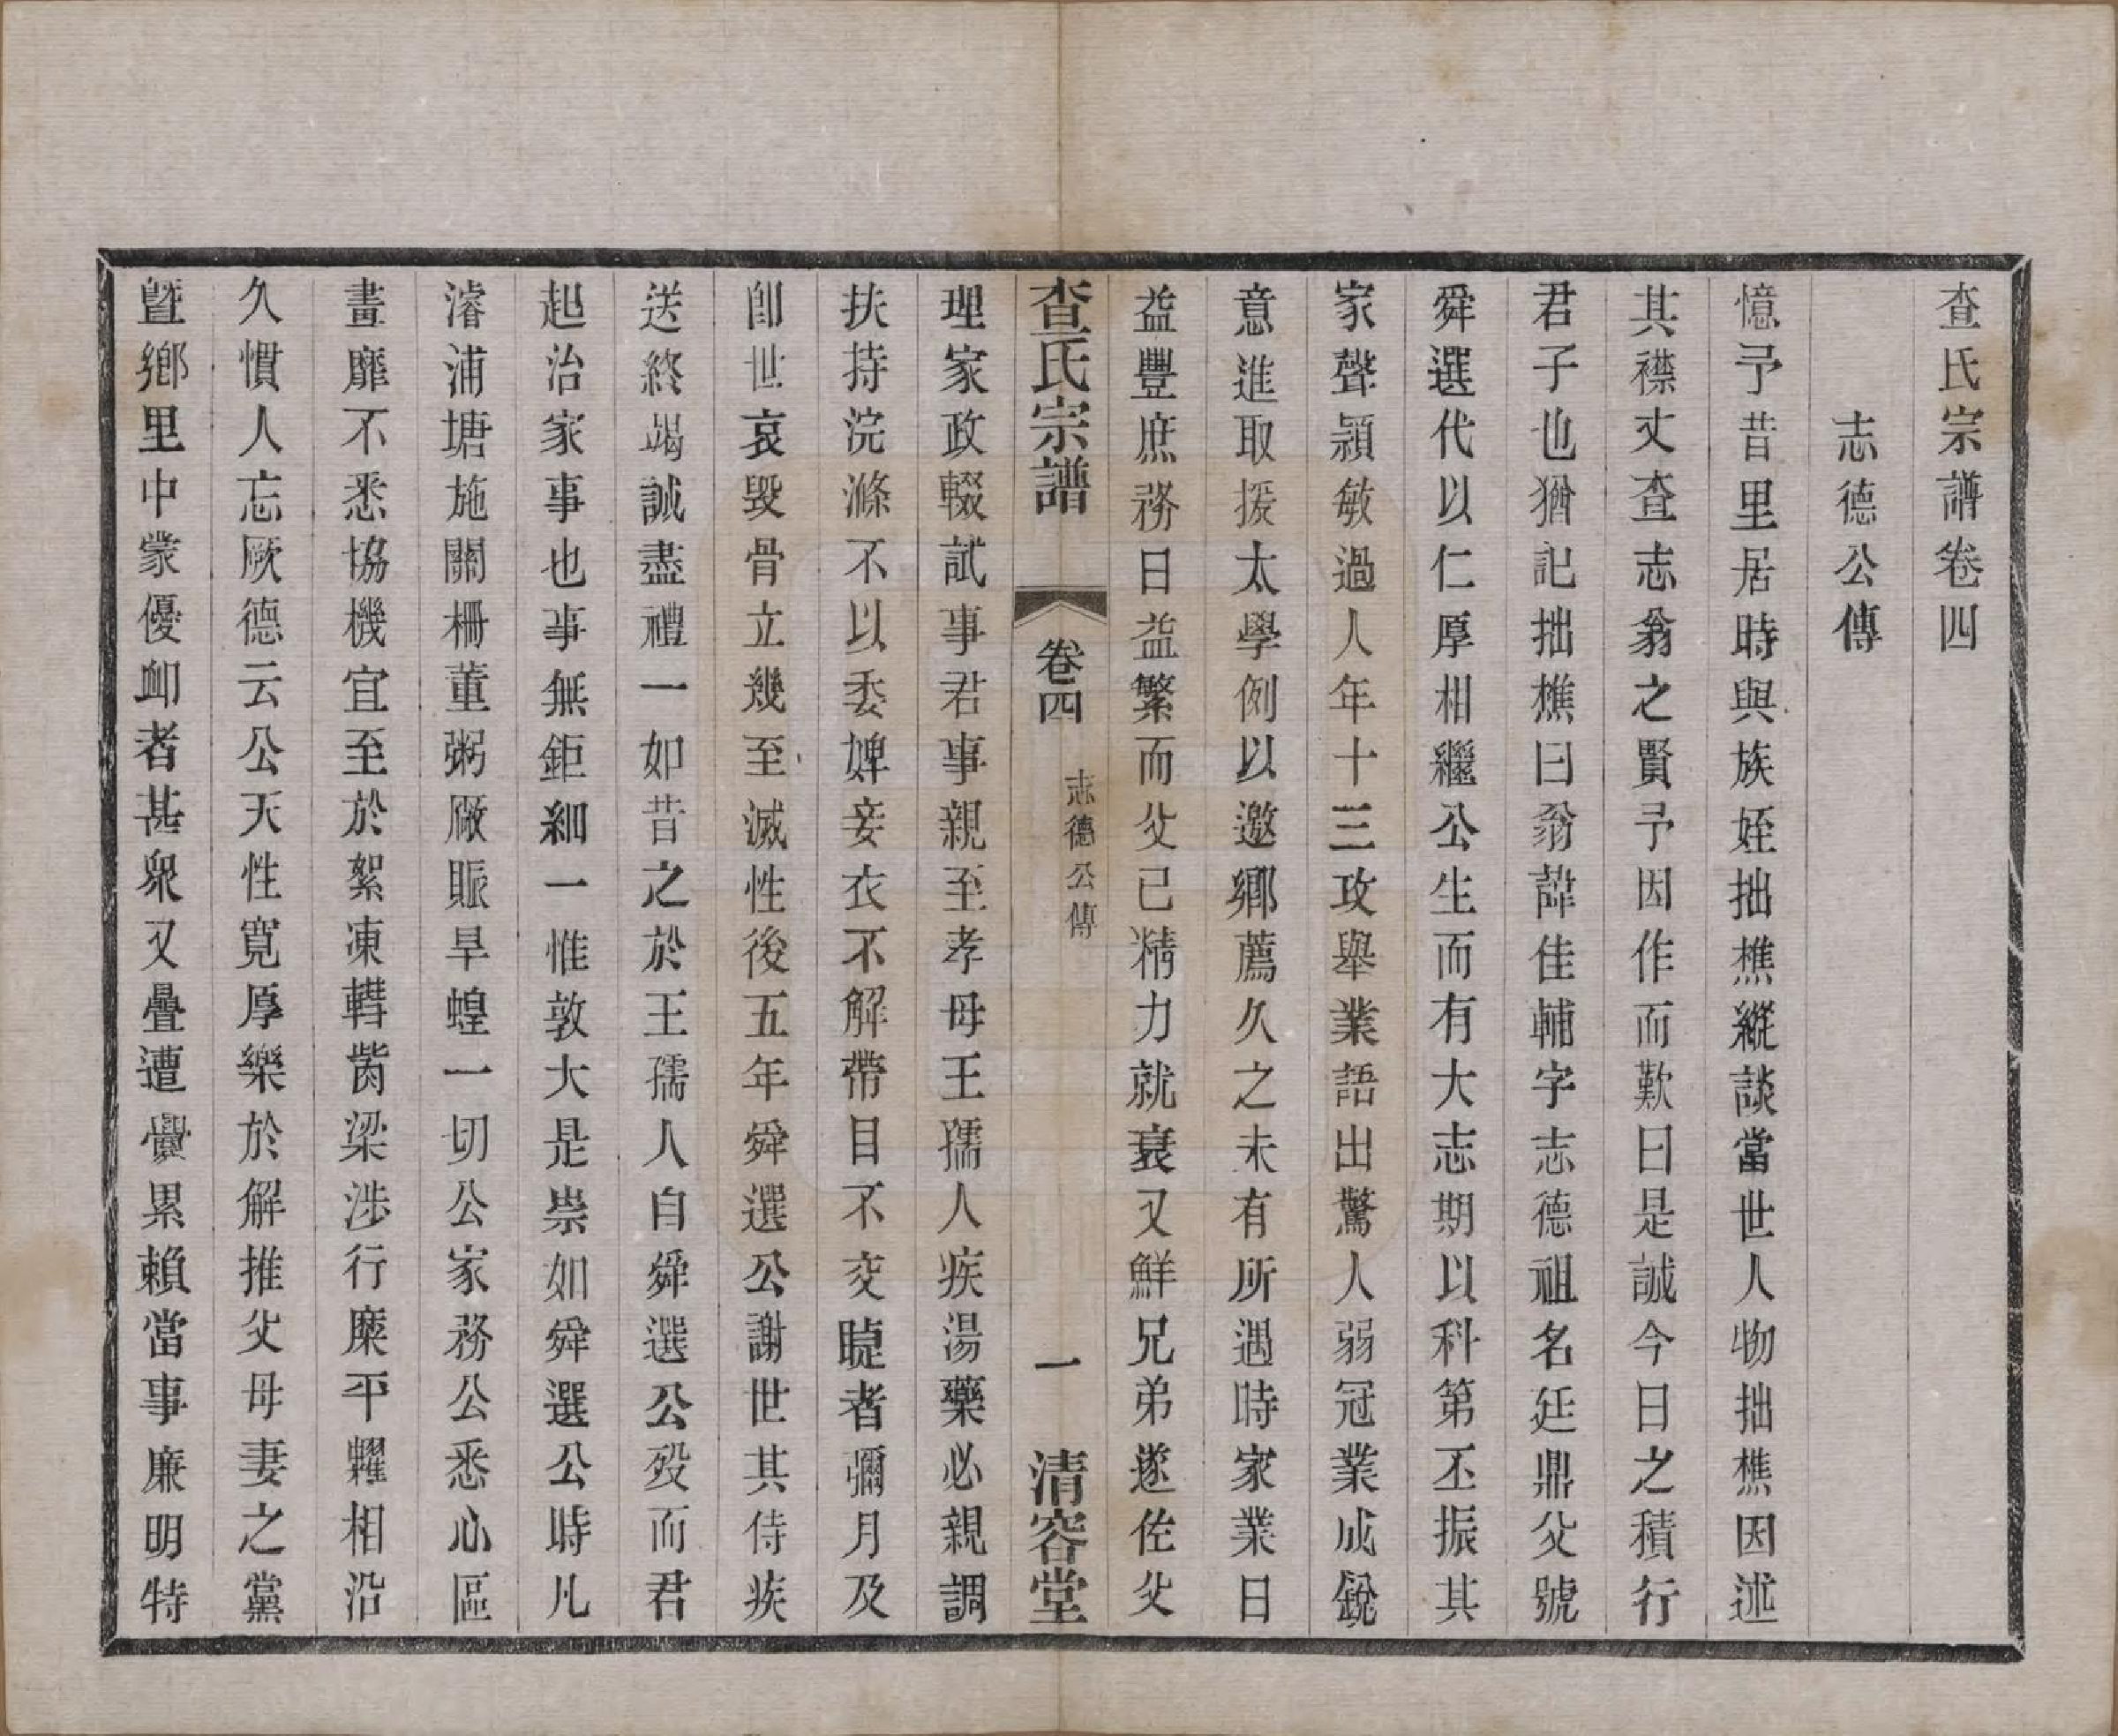 查氏宗譜卷四
志德公傳
憶予昔里居時與族姪拙樵縱談當世人物拙樵因述
其襟丈查志翁之賢予因作而歎曰是誠今日之積行
君子也猶記拙樵曰翁諱佳輔字志德祖名廷鼎父號
舜選代以仁厚相繼公生而有大志期以科第丕振其
家聲穎敏過人年十三攻舉業語出驚人弱冠業成銳
意進取援太學例以邀鄉薦久之未有所遇時家業日
益豐庶務日益繁而父已精力就衰又鮮兄弟遂佐父
查氏宗譜 卷四 志德公傳 一 清容堂
理家政輟試事君事親至孝母王孺人疾湯藥必親調
扶持浣滌不以委婢妾衣不解帶目不交睫者彌月及
卽世哀毀骨立幾至滅性後五年舜選公謝世其侍疾
送終竭誠盡禮一如昔之於王孺人自舜選公歿而君
起治家事也事無鉅細一惟敦大是崇如舜選公時凡
濬浦塘施關柵董粥廠賑旱蝗一切公家務公悉心區
畫靡不悉協機宜至於絮凍轊胔梁涉行糜平糶相沿
久慣人忘厥德云公天性寬厚樂於解推父母妻之黨
暨鄉里中蒙優卹者甚衆又疊遭釁累賴當事廉明特